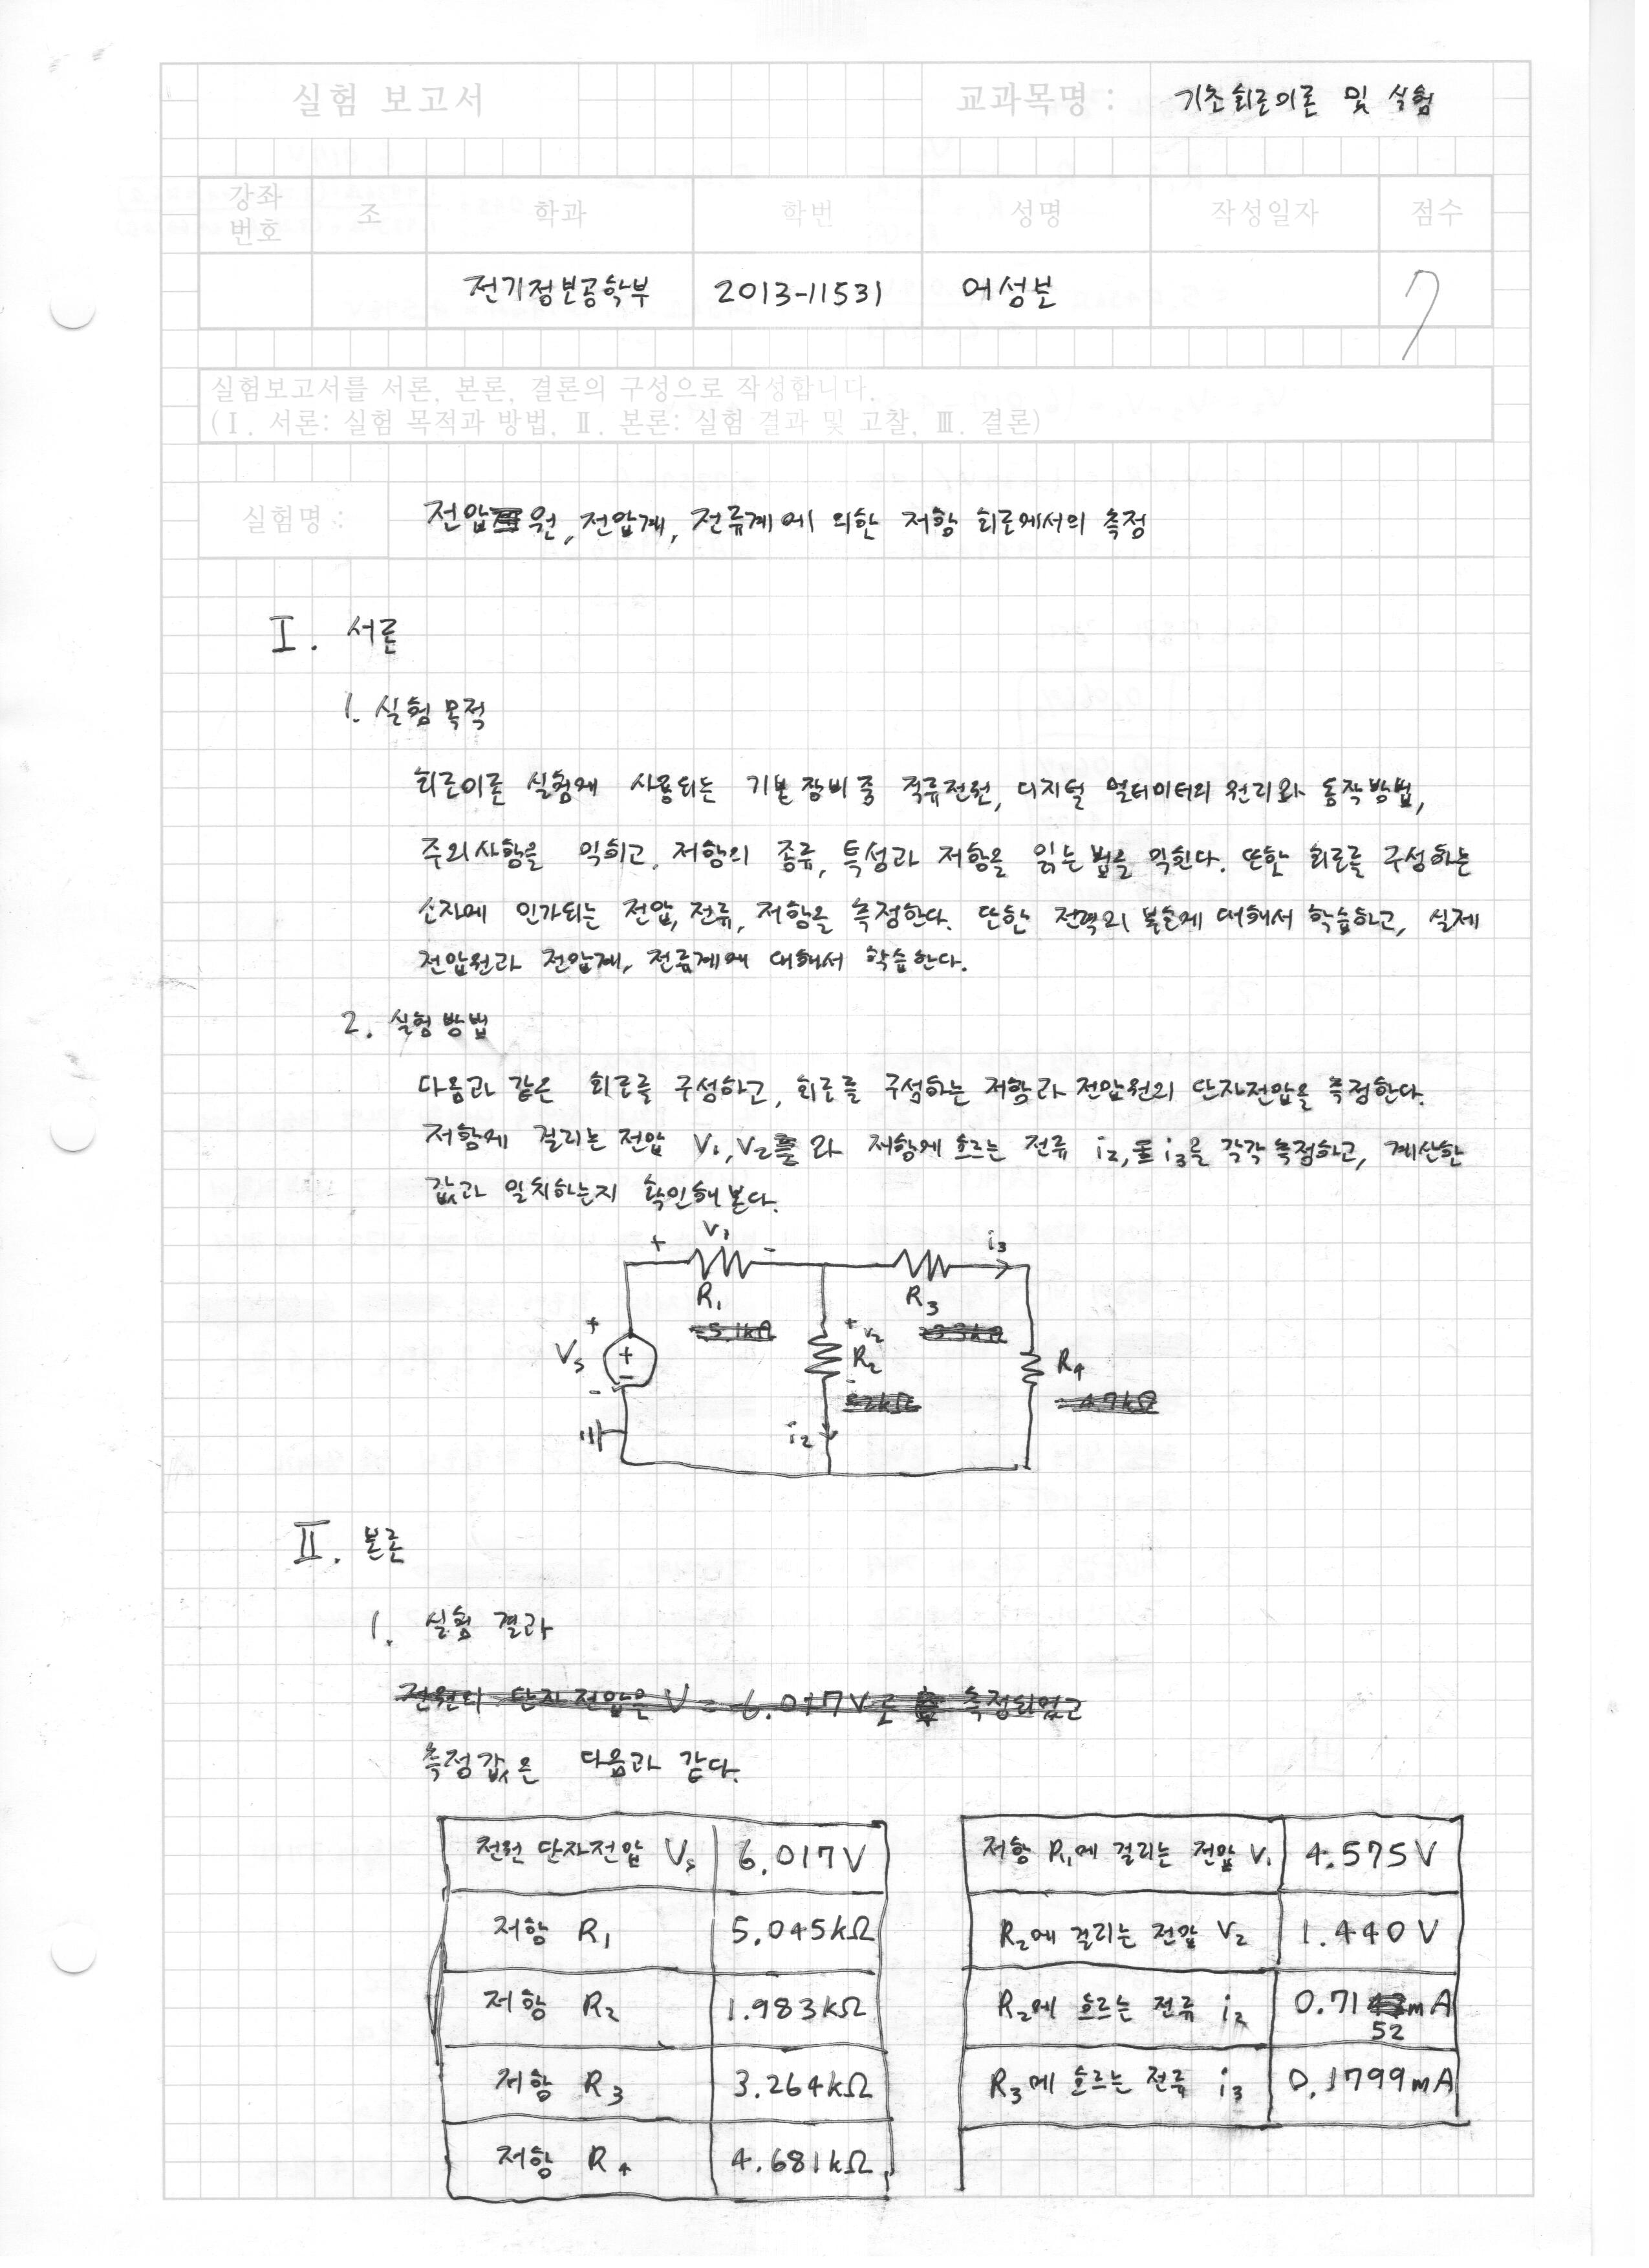 실험 보고서
교과목명 : 기초회로이론 및 실험
강좌번호 조 학과 학번 성명 작성일자 점수
전기정보공학부 2013-11531 어성보 7
실험보고서를 서론, 본론, 결론의 구성으로 작성합니다.
(Ⅰ. 서론: 실험 목적과 방법, Ⅱ. 본론: 실험 결과 및 고찰, Ⅲ. 결론)
실험명 : 전압원, 전압계, 전류계에 의한 저항 회로에서의 측정
Ⅰ. 서론
1. 실험 목적
회로이론 실험에 사용되는 기본 장비 중 직류전원, 디지털 멀티미터의 원리와 동작방법,
주의사항을 익히고, 저항의 종류, 특성과 저항을 읽는 법을 익힌다. 또한 회로를 구성하는
소자에 인가되는 전압, 전류, 저항을 측정한다. 또한 전력의 분산에 대해서 학습하고, 실제
전압원과 전압계, 전류계에 대해서 학습한다.
2. 실험 방법
다음과 같은 회로를 구성하고, 회로를 구성하는 저항과 전압원의 단자전압을 측정한다.
저항에 걸리는 전압 V₁, V₂와 저항에 흐르는 전류 i₂, i₃을 각각 측정하고, 계산한
값과 일치하는지 확인해 본다.
+ V₁ - i₃
R₁ R₃
5.1kΩ 3.3kΩ
+ Vs + - -
+ V₂ -
R₂ R₄
2kΩ 4.7kΩ
i₂
Ⅱ. 본론
1. 실험 결과
전원의 단자전압은 V = 6.017V로 측정되었고
측정값은 다음과 같다.
전원 단자전압 Vs 6.017V
저항 R₁ 5.045kΩ
저항 R₂ 1.983kΩ
저항 R₃ 3.264kΩ
저항 R₄ 4.681kΩ
저항 R₁에 걸리는 전압 V₁ 4.575V
R₂에 걸리는 전압 V₂ 1.440V
R₂에 흐르는 전류 i₂ 0.7152mA
R₃에 흐르는 전류 i₃ 0.1799mA